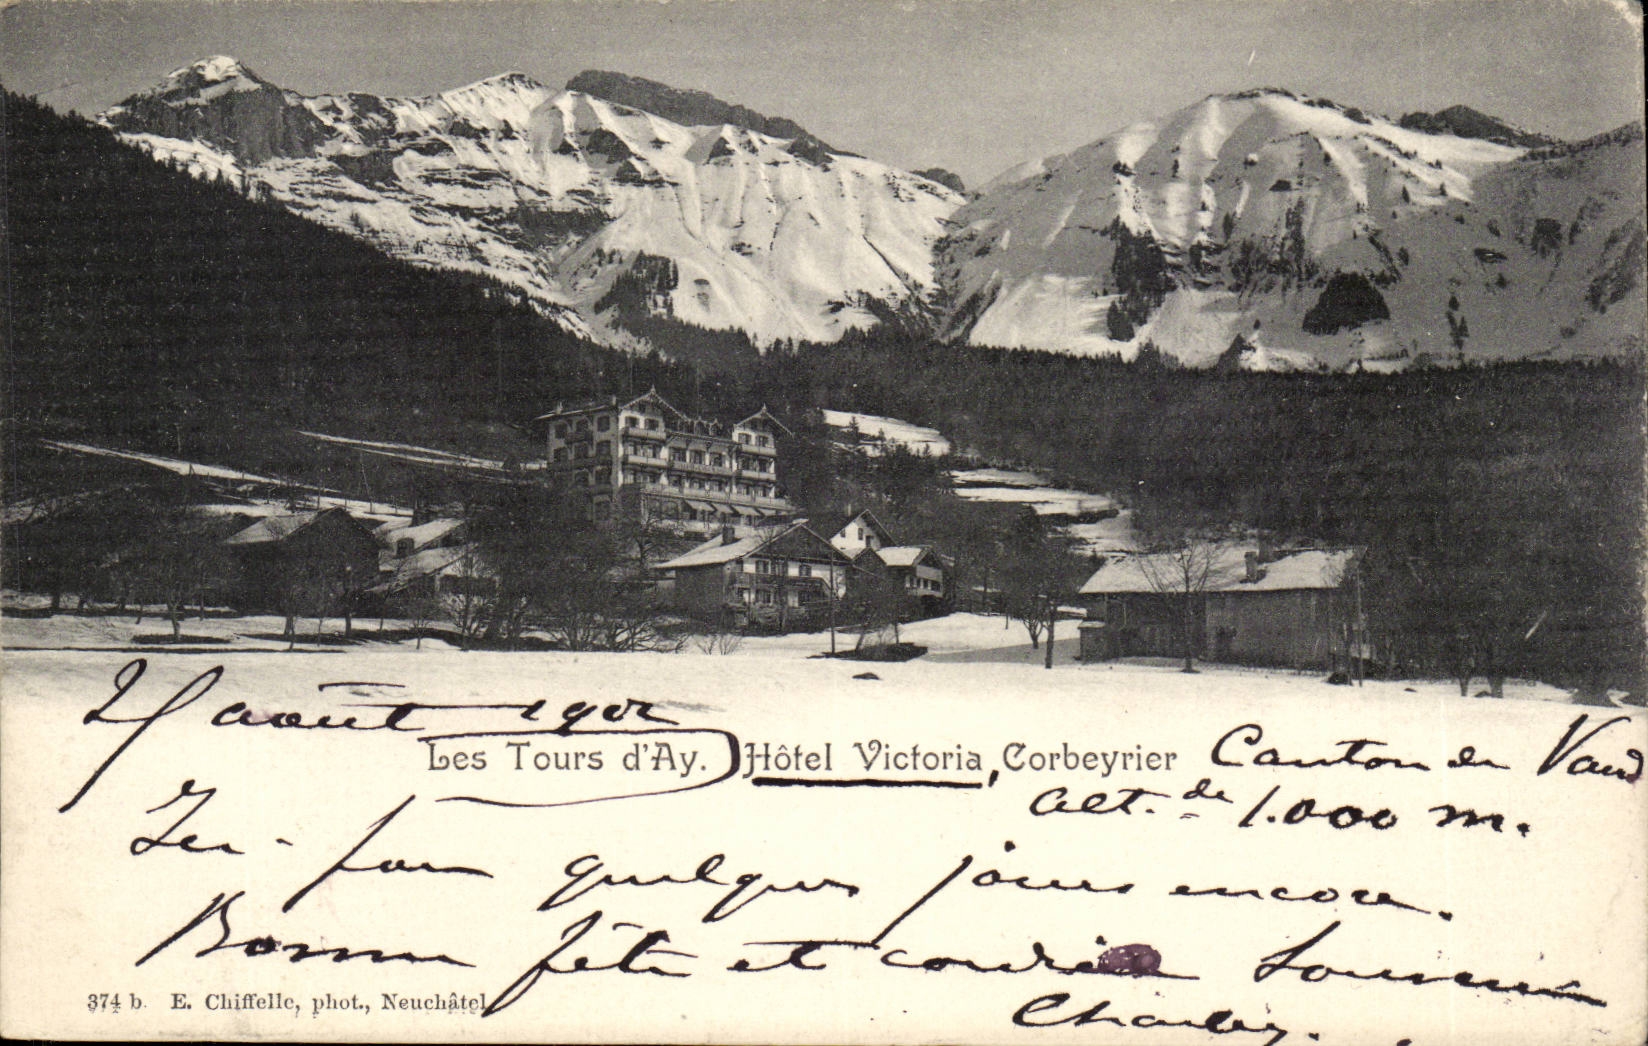 août 1902
Les Tours d'Ay. Hôtel Victoria, Corbeyrier Canton de Vaud
alt. de 1.000 m.
Ici - pour quelques jours encore.
Bonne fête et cordial Souvenir
Charley.
374 b. E. Chiffelle, phot., Neuchâtel